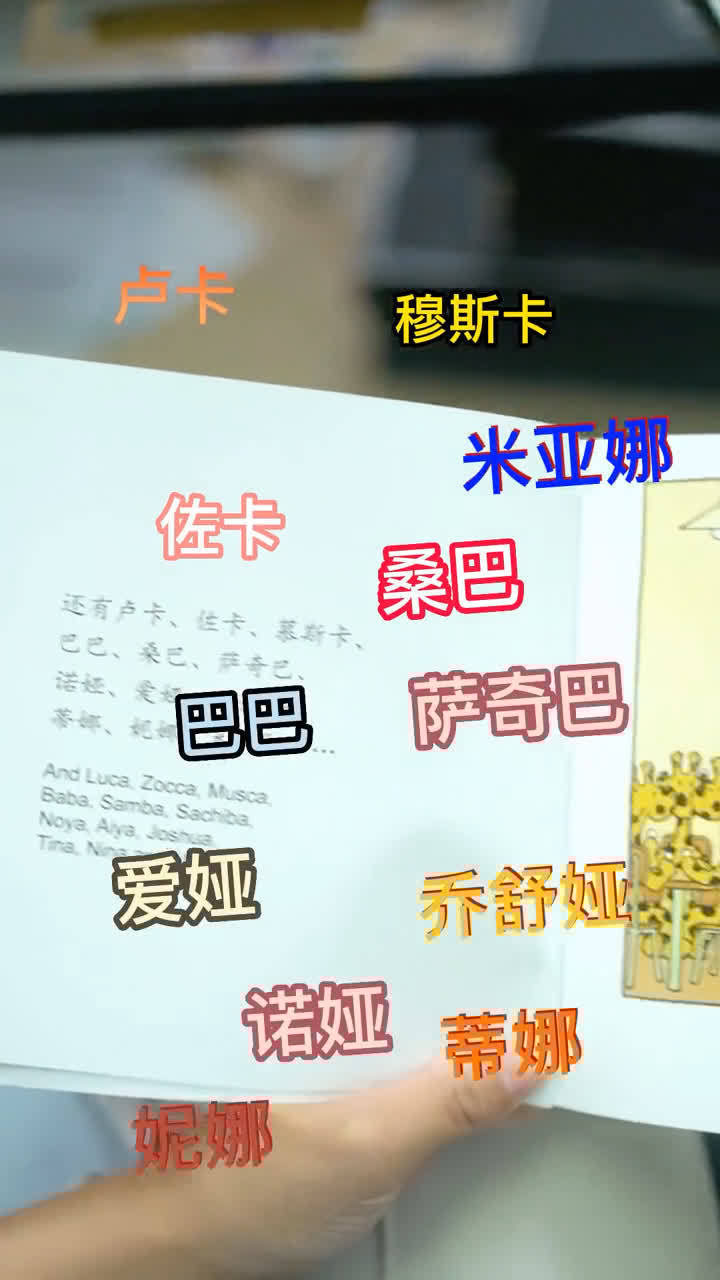 卢卡
穆斯卡
米亚娜
佐卡
桑巴
还有卢卡、佐卡、慕斯卡、
巴巴、桑巴、萨奇巴、
诺娅、爱娅
蒂娜、妮娜
...
巴巴
萨奇巴
And Luca, Zocca, Musca,
Baba, Samba, Sachiba,
Noya, Aiya, Joshua,
Tina, Nina
爱娅
乔舒娅
诺娅
蒂娜
妮娜